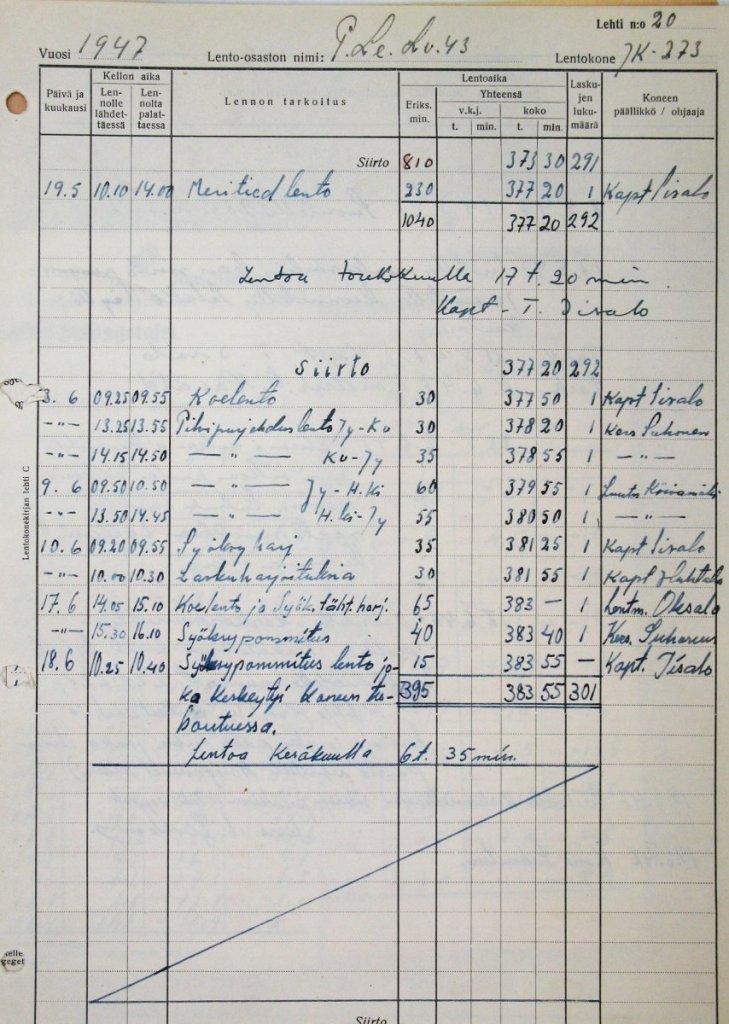 Lehti n:o 20
Vuosi 1947 Lento-osaston nimi: P.Le.Lv.43 Lentokone JK-273
Päivä ja kuukausi Kellon aika Lennolle lähdettäessä Lennolta palattaessa Lennon tarkoitus Lentoaika Eriks. min. Yhteensä v.k.j. t. min. koko t. min. Laskujen lukumäärä Koneen päällikkö / ohjaaja
Siirto 810 373 30 291
19.5 10.10 14.00 Meritied lento 230 377 20 1 Kapt Iisalo
1040 377 20 292
Lentoa toukokuulla 17 t. 20 min.
Kapt - T. Iisalo
Siirto 377 20 292
3. 6 09.25 09.55 Koelento 30 377 50 1 Kapt Iisalo
-"- 13.25 13.55 Pilvipurjehduslento Jy-Ku 30 378 20 1 Kers Suhonen
-"- 14.15 14.50 — " — Ku-Jy 35 378 55 1 — " —
9. 6 09.50 10.50 — " — Jy-H.Ki 60 379 55 1
-"- 13.50 14.45 — " — H.Ki-Jy 55 380 50 1 — " —
10.6 09.20 09.55 Syöksy harj 35 381 25 1 Kapt Iisalo
-"- 10.00 10.30 Laskuharjoituksia 30 381 55 1 Kapt
17.6 14.05 15.10 Koelento ja Syöks. täht. harj. 65 383 — 1 Lentm. Oksala
-"- 15.30 16.10 Syöksypommitus 40 383 40 1 Kers.
18.6 10.25 10.40 Syöksypommitus lento jo- 15 383 55 — Kapt. Iisalo
ka keskeytyi koneen 395 383 55 301
Lentoa Kesäkuulla 6 t. 35 min.
Siirto
Lentokonekirjan lehti C